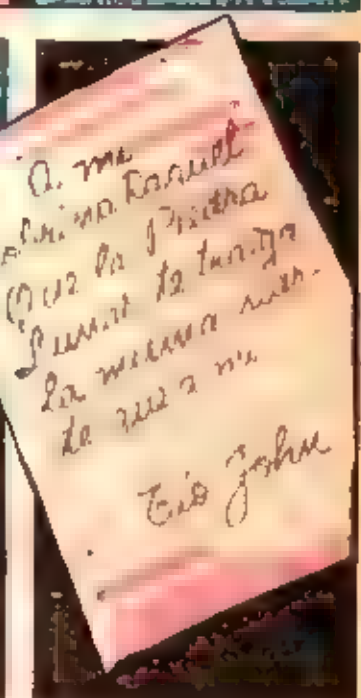 A mi
sobrina Raquel
Que la Piedra
Lunar te traiga
la misma suer-
te que a mi
Tio John